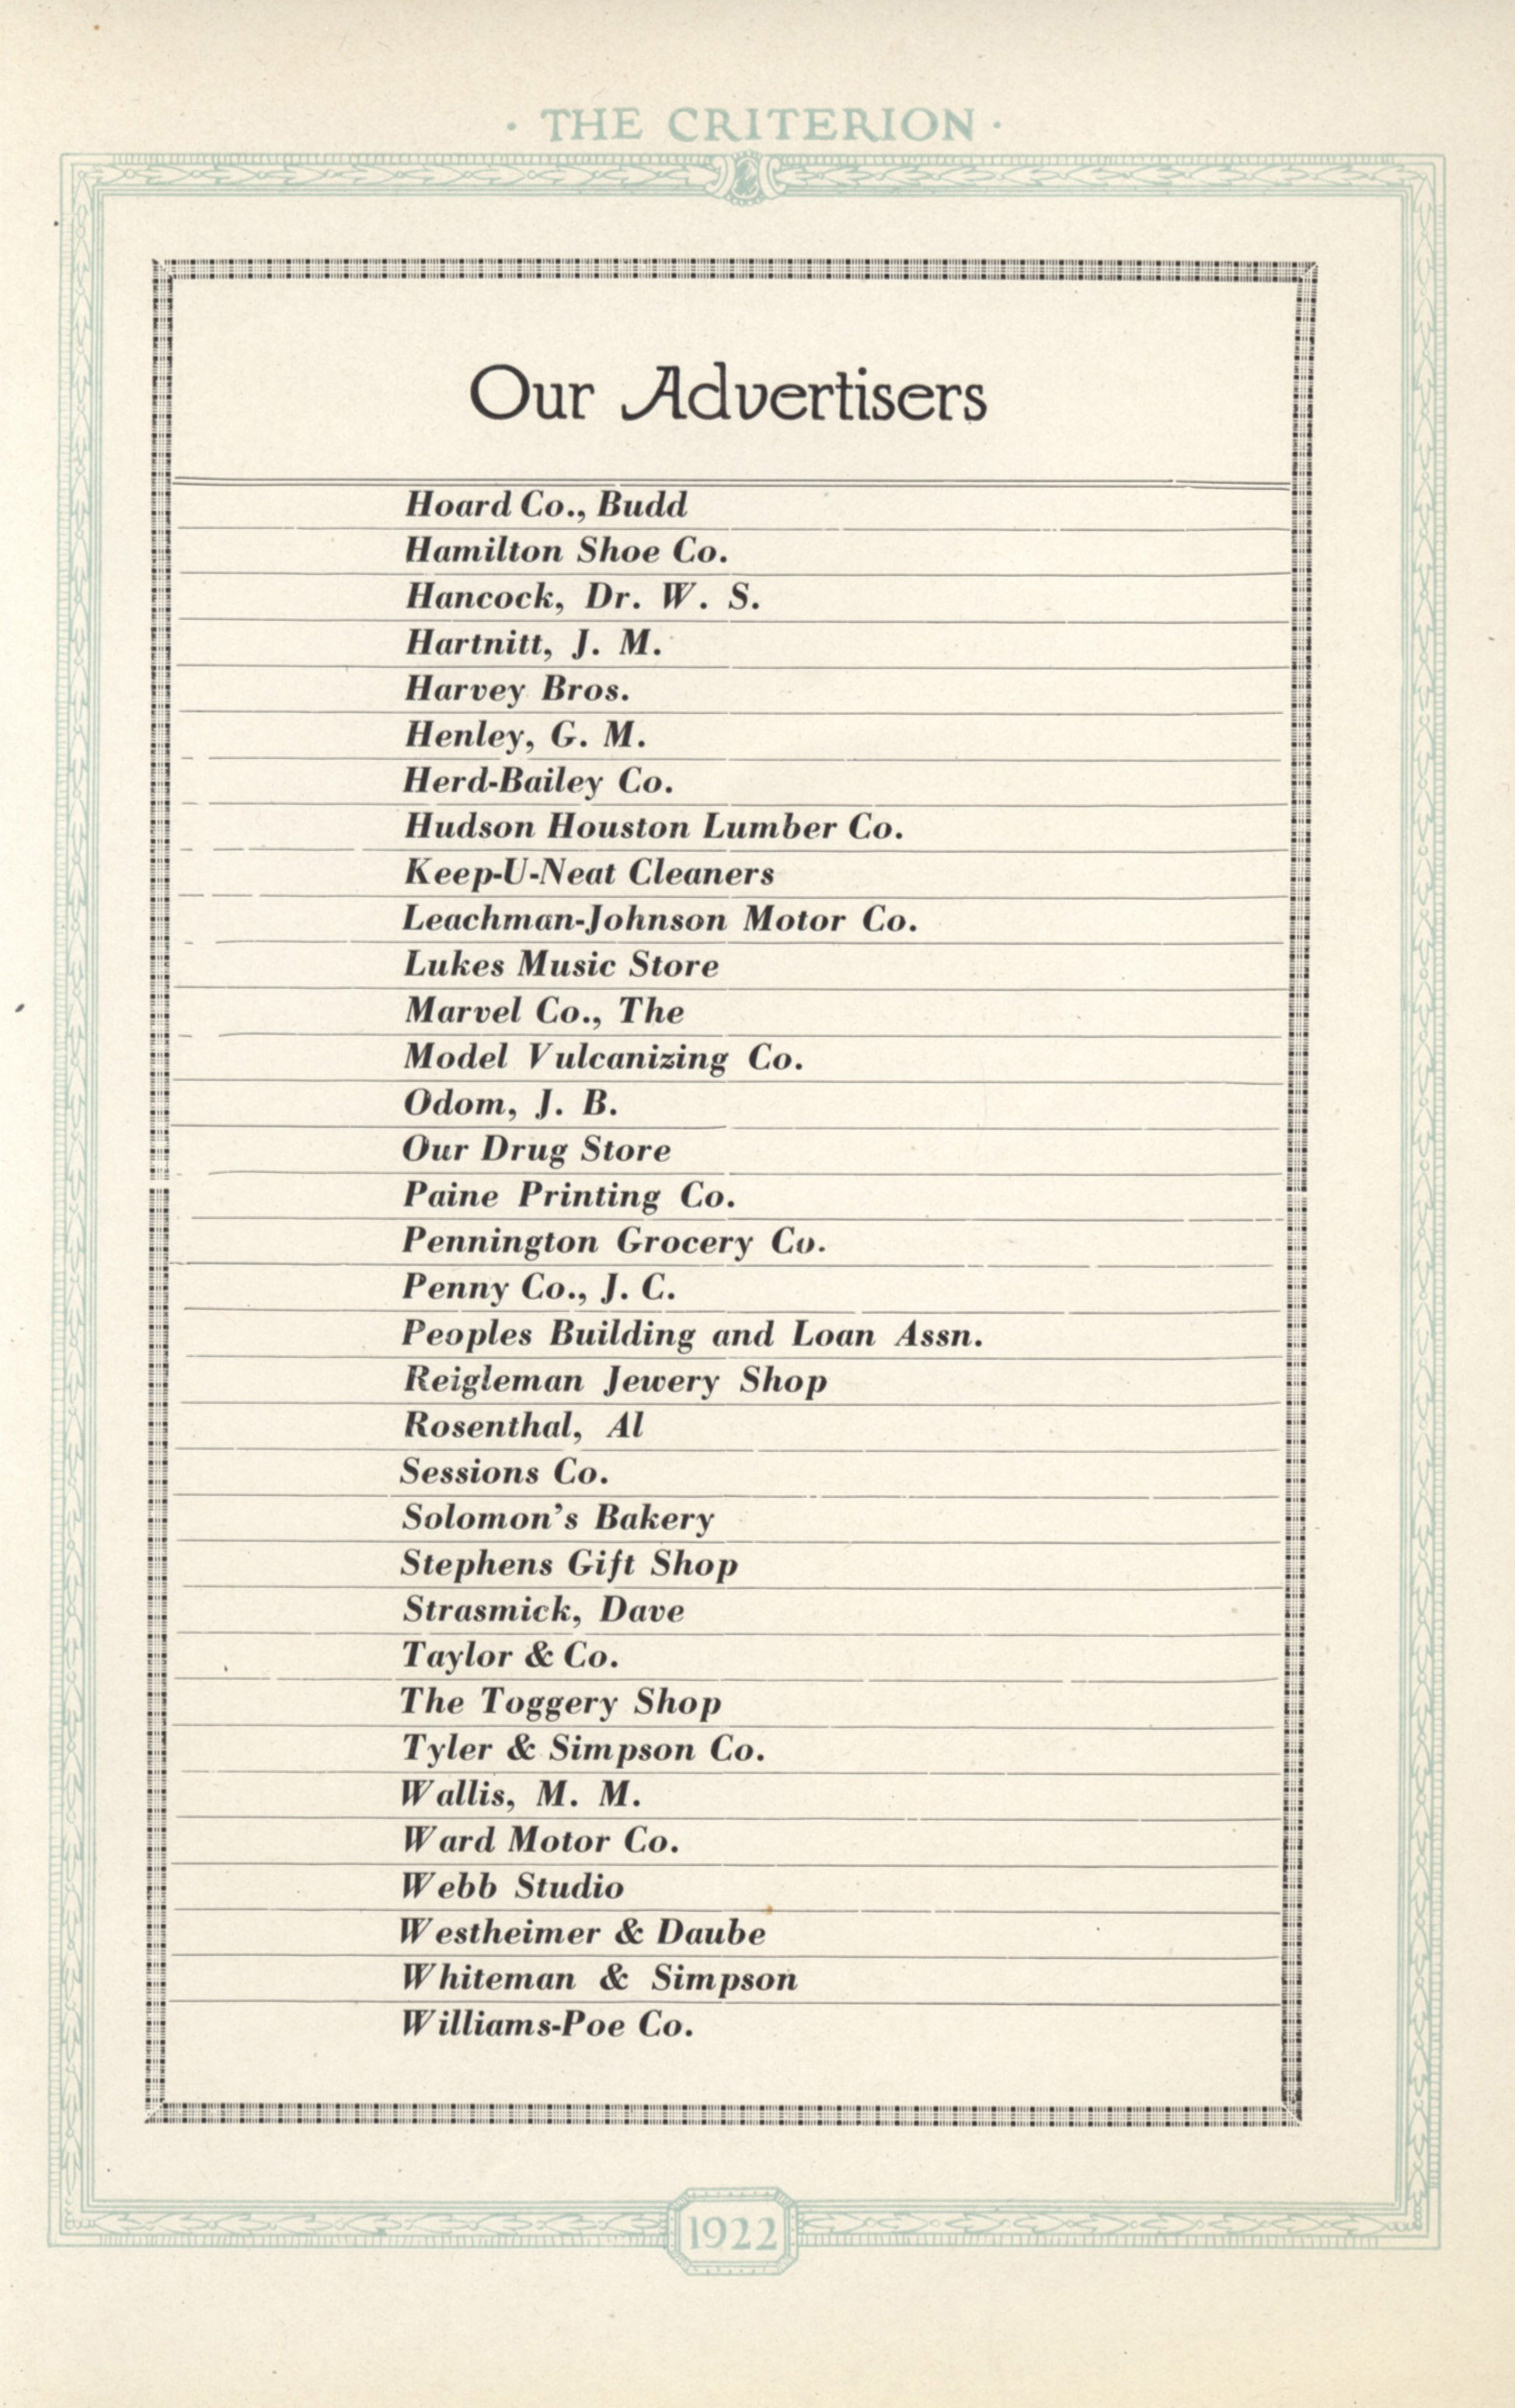 · THE CRITERION ·
Our Advertisers
Hoard Co., Budd
Hamilton Shoe Co.
Hancock, Dr. W. S.
Hartnitt, J. M.
Harvey Bros.
Henley, G. M.
Herd-Bailey Co.
Hudson Houston Lumber Co.
Keep-U-Neat Cleaners
Leachman-Johnson Motor Co.
Lukes Music Store
Marvel Co., The
Model Vulcanizing Co.
Odom, J. B.
Our Drug Store
Paine Printing Co.
Pennington Grocery Co.
Penny Co., J. C.
Peoples Building and Loan Assn.
Reigleman Jewery Shop
Rosenthal, Al
Sessions Co.
Solomon's Bakery
Stephens Gift Shop
Strasmick, Dave
Taylor & Co.
The Toggery Shop
Tyler & Simpson Co.
Wallis, M. M.
Ward Motor Co.
Webb Studio
Westheimer & Daube
Whiteman & Simpson
Williams-Poe Co.
1922